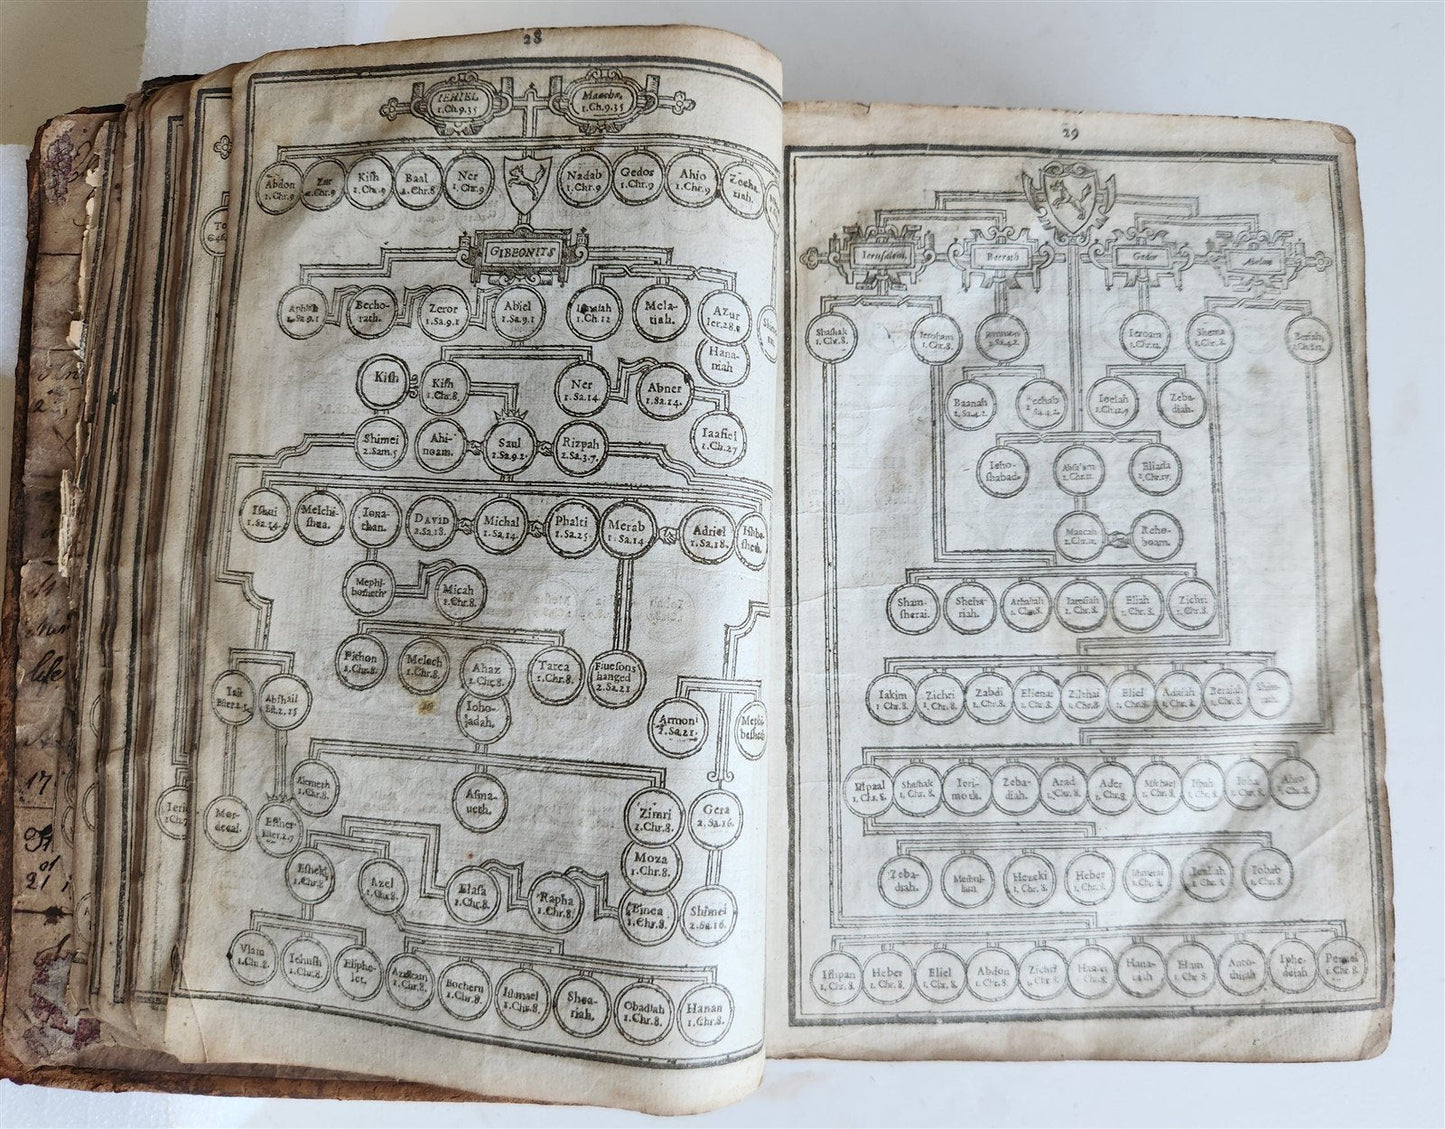 28
IEHIEL
1.Ch.9.35
Maacha,
1.Ch.9.35
Abdon
1.Ch.9
Zur
1.Ch.9
Kish
1.Ch.9
Baal
1.Chr.8
Ner
1.Ch.9
Nadab
1.Ch.9
Gedor
1.Ch.9
Ahio
1.Ch.9
Zecha-
riah.
GIBEONITS
1.Sa.9.1
Becho-
rath.
Zeror
1.Sa.9.1
Abiel
1.Sa.9.1
1.Ch.12
Mela-
tiah.
Azur
Ier.28.1
Hana-
niah
Kish
Kish
1.Chr.8.
Ner
1.Sa.14.
Abner
1.Sa.14.
Iaasiel
1.Ch.27
Shimei
2.Sam.5
Ahi-
noam.
Saul
1.Sa.9.2.
Rizpah
2.Sa.3.7.
Ishui
1.Sa.14.
Melchi-
shua.
Iona-
than.
DAVID
1.Sa.18.
Michal
1.Sa.14.
Phalti
1.Sa.25.
Merab
1.Sa.14
Adriel
1.Sa.18.
Ishbo-
sheth.
Mephi-
bosheth
Micah
1.Chr.8.
Pithon
1.Chr.8.
Melech
1.Chr.8.
Ahaz
1.Chr.8.
Tarea
1.Chr.8.
Fiue sons
hanged
2.Sa.21
Ioho-
jadah.
Iair
Ester 2.5
Abihail
Est.2.15
Armoni
2.Sa.21.
Mephi-
bosheth
Alemeth
1.Chr.8.
Asma-
ueth.
Zimri
1.Chr.8.
Gera
2.Sa.16.
Mor-
decai.
Esther
Ester.2.7
Moza
1.Chr.8.
Eshek
1.Chr.8
Azel
1.Chr.8.
Elasa
1.Chr.8.
Rapha
1.Chr.8.
Binea
1.Chr.8.
Shimei
2.Sa.16.
Vlam
1.Chr.8.
Iehush
1.Chr.8.
Elipha-
let.
Azrikam
1.Chr.8.
Bocheru
1.Chr.8.
Ishmael
1.Chr.8.
Shea-
riah.
Obadiah
1.Chr.8.
Hanan
1.Chr.8.
29
Ierusalem,
Beeroth
Gedor
Shashak
1.Chr.8.
Ieroham
1.Chr.8.
2.Sa.4.2.
Ieroam
1.Chr.12.
Shema
1.Chr.8.
Beriah
Baanah
2.Sa.4.2.
Rechab
2.Sa.4.2.
Ioelah
1.Ch.12.9
Zeba-
diah.
Ieho-
shabad.
Eliada
2.Chr.17.
Maacah
2.Chr.11.
Reho-
boam.
Sham-
sherai.
Sheha-
riah.
Athaliah
1.Chr.8.
Iaresiah
1.Chr.8.
Eliah
1.Chr.8.
Zichri
1.Chr.8.
Iakim
1.Chr.8.
Zichri
1.Chr.8.
Zabdi
1.Chr.8.
Elienai
1.Chr.8.
Zilthai
1.Chr.8.
Eliel
1.Chr.8.
Adaiah
1.Chr.8.
Beraiah
1.Chr.8.
Shim-
rath.
1.Chr.8.
Shashak
1.Chr.8.
Ieri-
moth.
Zeba-
diah.
Arad
1.Chr.8.
Ader
1.Chr.8.
Michael
1.Chr.8.
Ispah
1.Chr.8.
Ioha
1.Chr.8.
Ahio
1.Chr.8.
Zeba-
diah.
Meshul-
lam
Hezeki
1.Chr.8.
Heber
1.Chr.8.
1.Chr.8.
1.Chr.8.
Iobab
1.Chr.8.
Ishpan
1.Chr.8.
Heber
1.Chr.8.
Eliel
1.Chr.8.
Abdon
1.Chr.8.
Zichri
1.Chr.8.
Hanan
1.Chr.8.
Hana-
niah
Elam
1.Chr.8
Anto-
thijah
Iphe-
deiah
1.Chr.8.